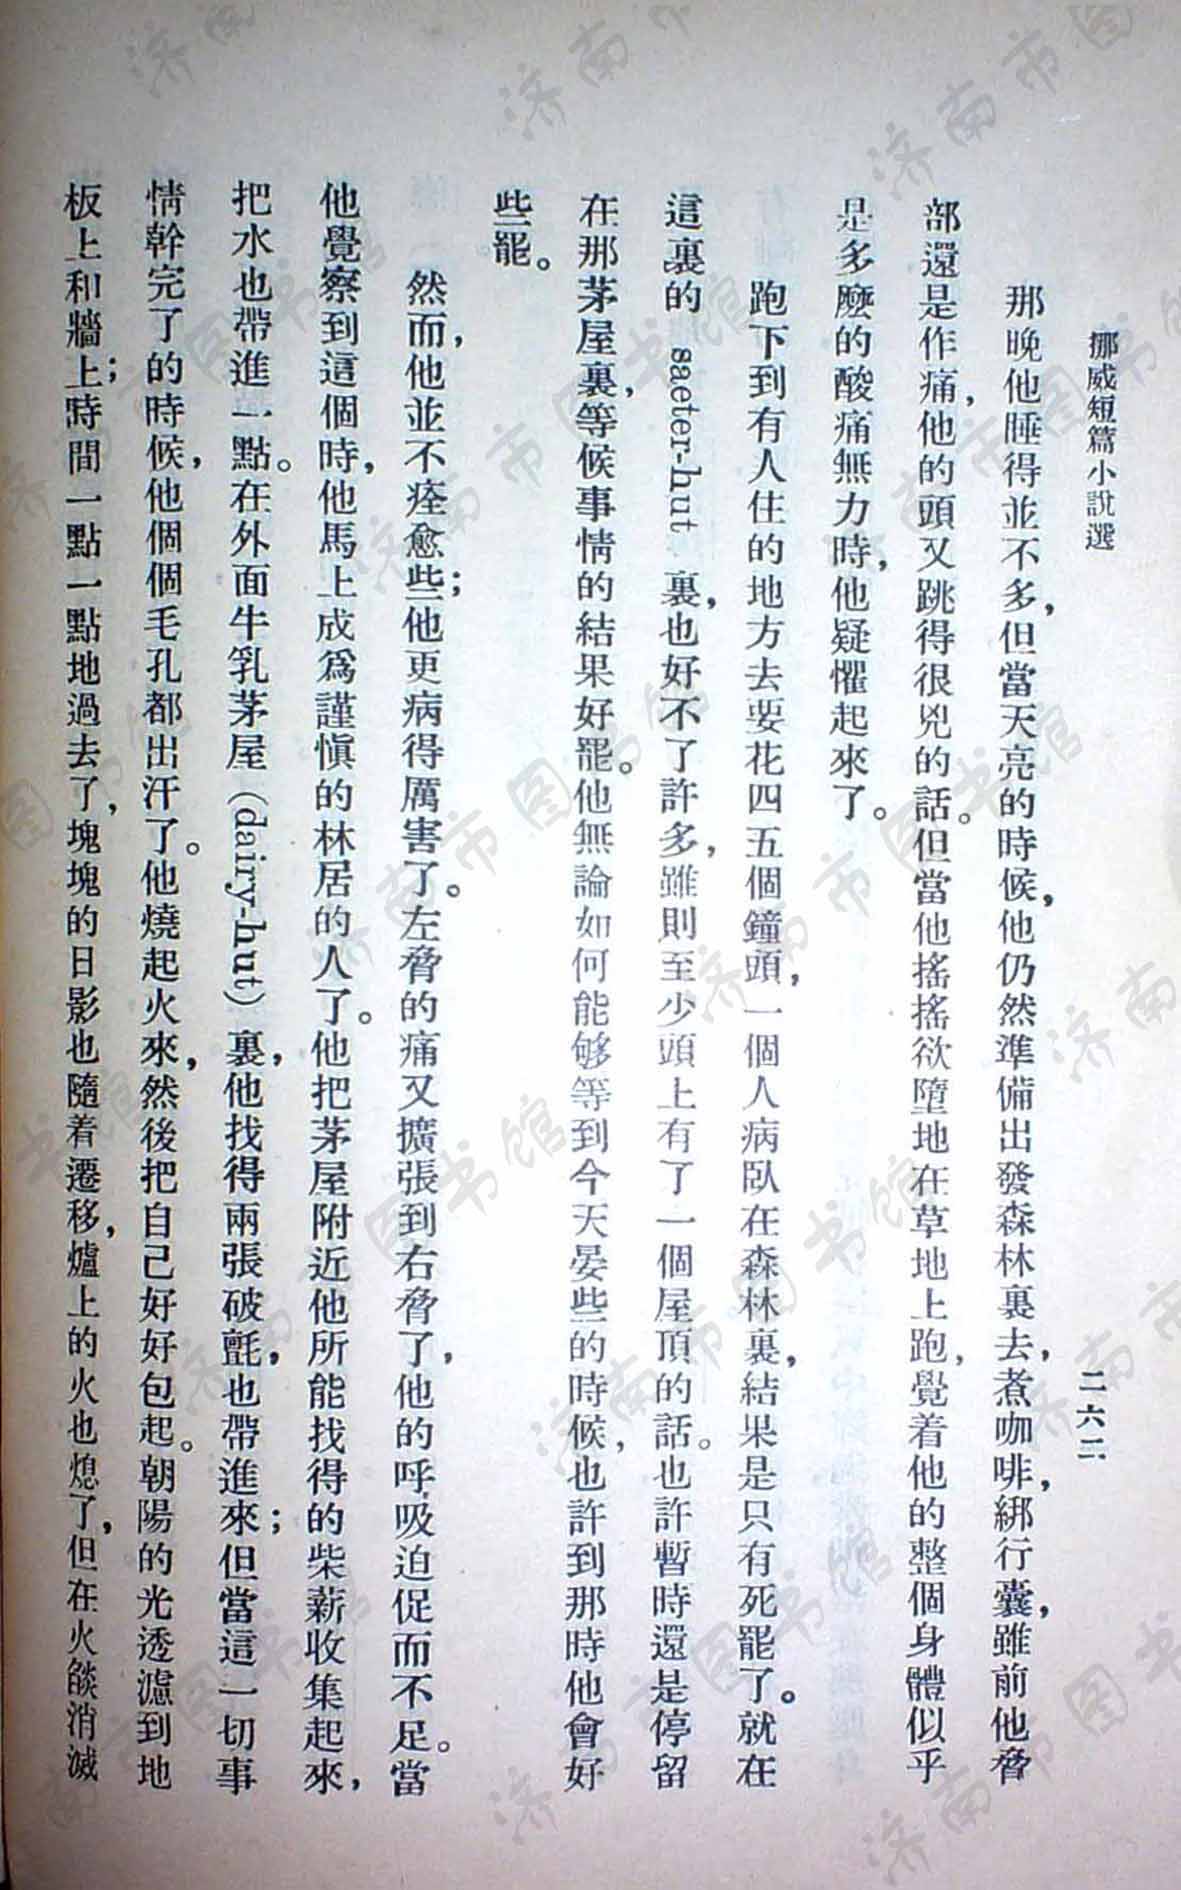 挪威短篇小說選
二六二
那晚他睡得並不多，但當天亮的時候，他仍然準備出發森林裏去，煮咖啡，綁行囊，雖前他脅
部還是作痛，他的頭又跳得很兇的話。但當他搖搖欲墮地在草地上跑，覺着他的整個身體似乎
是多麼的酸痛無力時，他疑懼起來了。
跑下到有人住的地方去要花四五個鐘頭，一個人病臥在森林裏，結果是只有死罷了。就在
這裏的 saeter-hut 裏，也好不了許多，雖則至少頭上有了一個屋頂的話。也許暫時還是停留
在那茅屋裏，等候事情的結果好罷。他無論如何能够等到今天晏些的時候，也許到那時他會好
些罷。
然而，他並不痊愈些；他更病得厲害了。左脅的痛又擴張到右脅了，他的呼吸迫促而不足。當
他覺察到這個時，他馬上成爲謹愼的林居的人了。他把茅屋附近他所能找得的柴薪收集起來，
把水也帶進一點。在外面牛乳茅屋（dairy-hut）裏，他找得兩張破氈，也帶進來；但當這一切事
情幹完了的時候，他個個毛孔都出汗了。他燒起火來，然後把自己好好包起。朝陽的光透濾到地
板上和牆上；時間一點一點地過去了，塊塊的日影也隨着遷移，爐上的火也熄了，但在火燄消滅
济南市图书馆